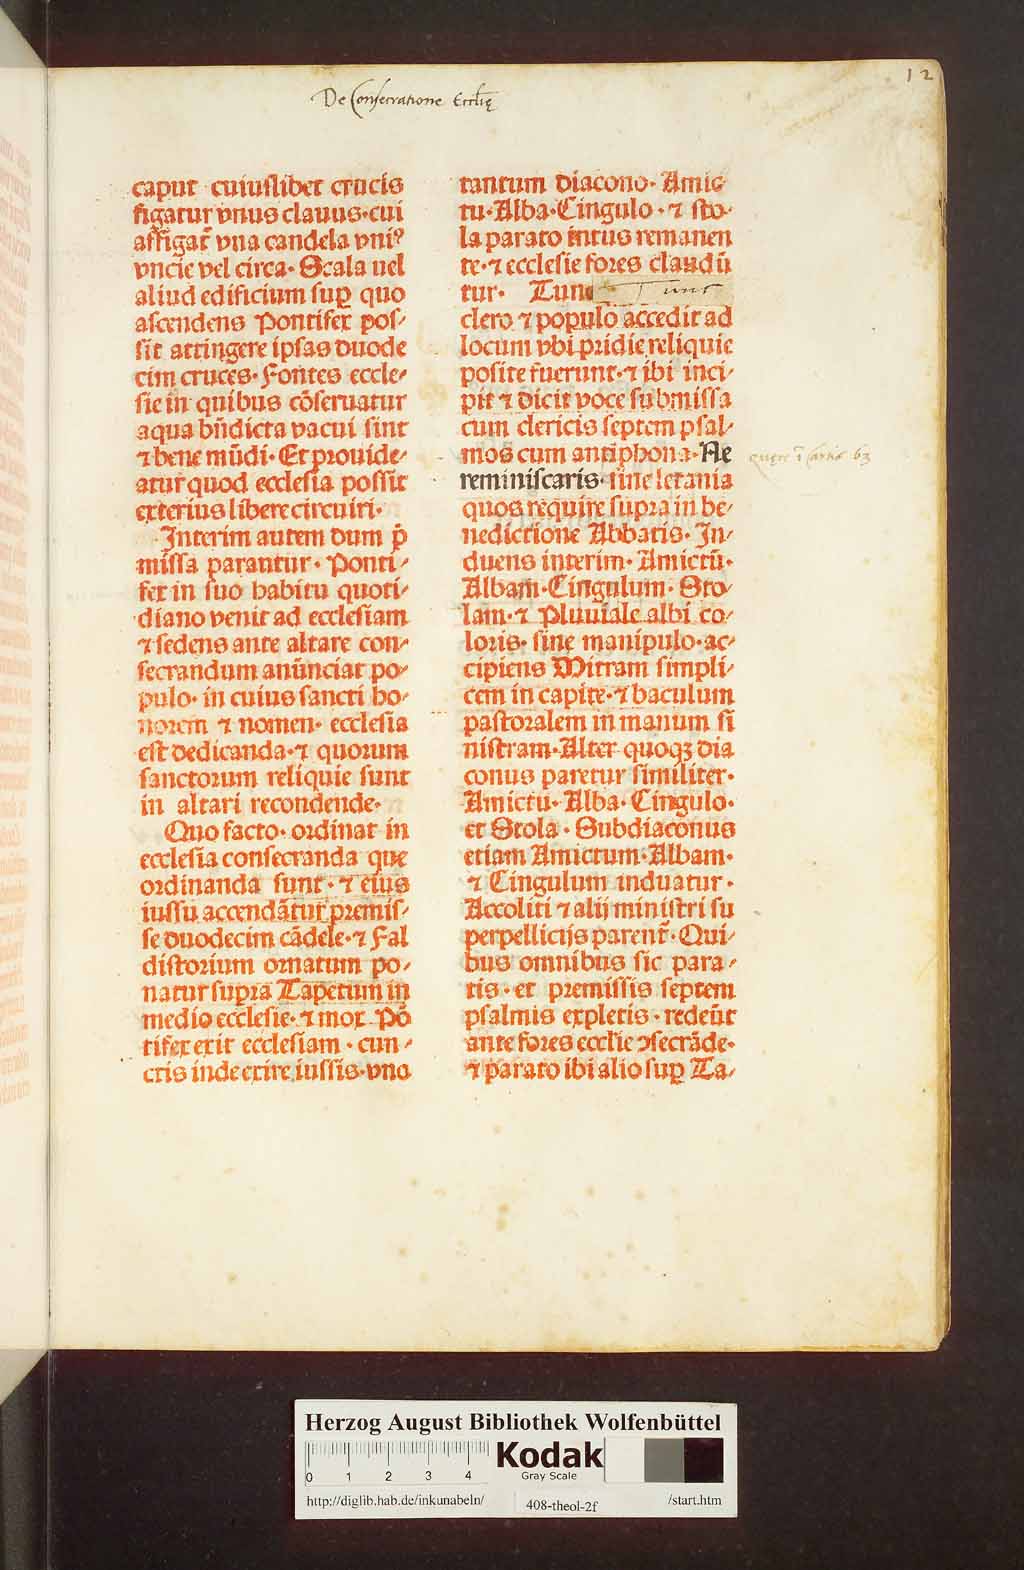 De Consecratione Eccl̄ię
12
caput cuiuslibet crucis
figatur vnus clauus· cui
affigat᷑ vna candela vniꝰ
vncie vel circa· Scala uel
aliud edificium sup̱ quo
ascendens Pontifex pos⸗
sit attingere ipsas duode
cim cruces· Fontes eccle⸗
sie in quibus cōseruatur
aqua bn̄dicta vacui sint
⁊ bene mūdi· Et prouide⸗
atur quod ecclesia possit
exterius libere circuiri·
Interim autem dum p̄
missa parantur· Ponti⸗
fex in suo habitu quoti⸗
diano venit ad ecclesiam
⁊ sedens ante altare con⸗
secrandum anūnciat po⸗
pulo· in cuius sancti ho⸗
norem ⁊ nomen· ecclesia
est dedicanda· ⁊ quorum
sanctorum reliquie sunt
in altari recondende·
Quo facto· ordinat in
ecclesia consecranda que
ordinanda sunt· ⁊ eius
iussu accendātur premis⸗
se duodecim cādele· ⁊ Fal
distorium ornatum po⸗
natur supra Tapetum in
medio ecclesie· ⁊ mox Pō
tifex exit ecclesiam· cun⸗
ctis inde exire iussis· vno
tantum diacono· Amic
tu· Alba· Cingulo· ⁊ sto⸗
la parato intus remanen
te· ⁊ ecclesie fores claudū
tur· Tunc Tunc
clero ⁊ populo accedit ad
locum vbi pridie reliquie
posite fuerunt· ⁊ ibi inci⸗
pit ⁊ dicit voce submissa
cum clericis septem psal⸗
mos cum antiphona· Ne
reminiscaris· sine letania
quos require supra in be⸗
nedictione Abbatis· In⸗
duens interim· Amictū·
Albam· Cingulum· Sto⸗
lam· ⁊ Pluuiale albi co⸗
loris· sine manipulo· ac⸗
cipiens Mitram simpli⸗
cem in capite· ⁊ baculum
pastoralem in manum si
nistram· Alter quoqꝫ dia
conus paretur similiter·
Amictu· Alba· Cingulo·
et Stola· Subdiaconus
etiam Amictum· Albam·
⁊ Cingulum induatur·
Accoliti ⁊ alij ministri su
perpellicijs parent᷑· Qui⸗
bus omnibus sic para⸗
tis· et premissis septem
psalmis expletis· redeūt
ante fores ecclie ꝯsecrāde·
⁊ parato ibi alio sup̱ Ta⸗
quęre ī Cartis 63
Herzog August Bibliothek Wolfenbüttel
0 1 2 3 4
Kodak
Gray Scale
http://diglib.hab.de/inkunabeln/ 408-theol-2f /start.htm